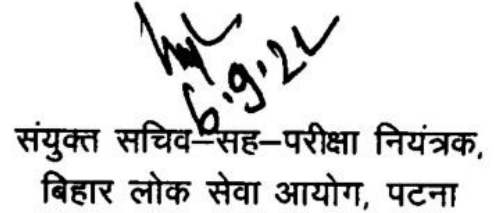 6.9.22
संयुक्त सचिव–सह–परीक्षा नियंत्रक,
बिहार लोक सेवा आयोग, पटना